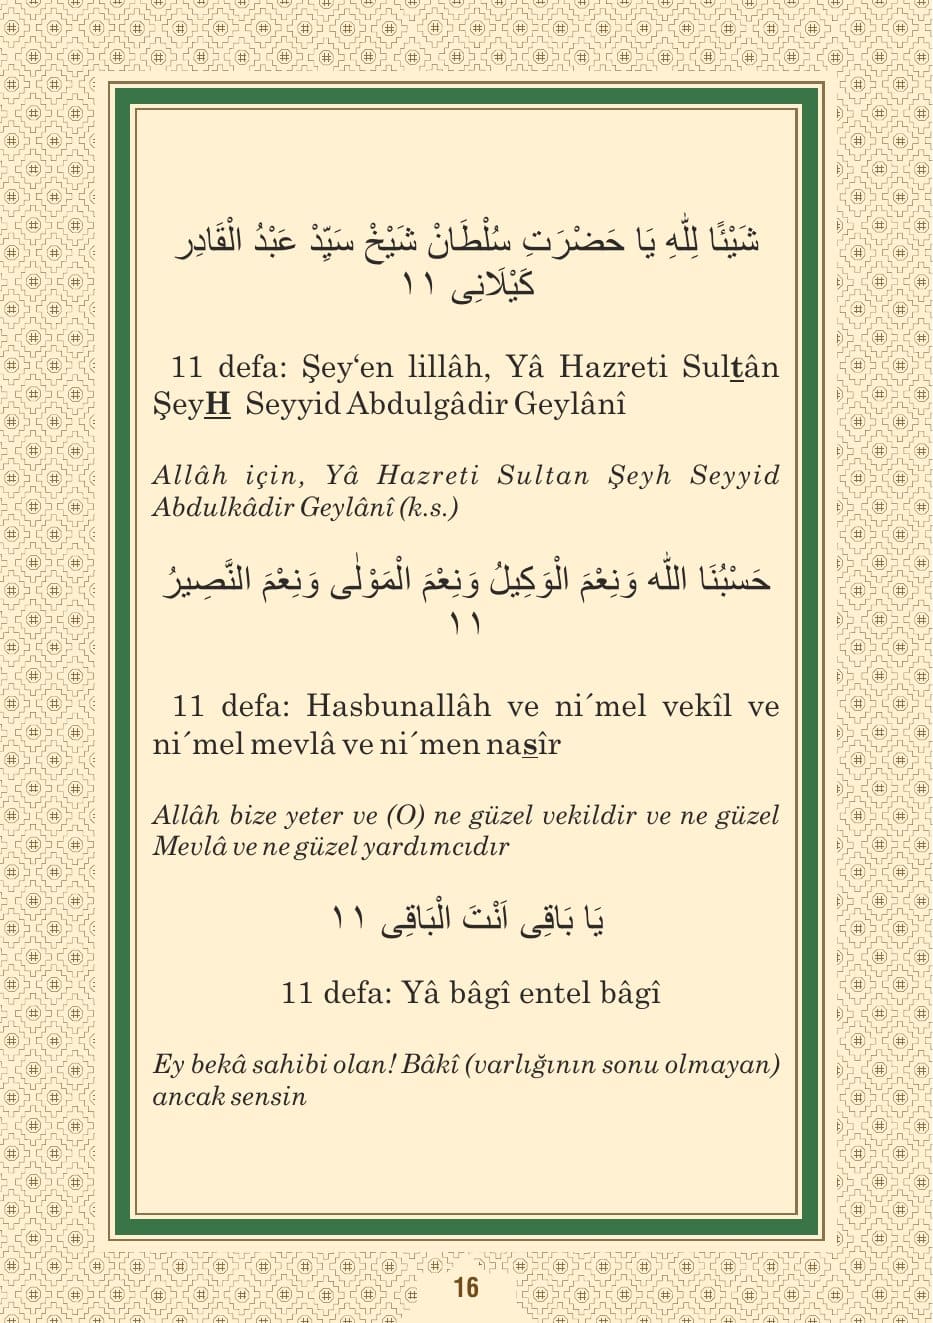 شَيْئًا لِلّٰهِ يَا حَضْرَتِ سُلْطَانْ شَيْخْ سَيِّدْ عَبْدُ الْقَادِر
كَيْلَانِى ١١
11 defa: Şey‘en lillâh, Yâ Hazreti Sultân
ŞeyH Seyyid Abdulgâdir Geylânî
Allâh için, Yâ Hazreti Sultan Şeyh Seyyid
Abdulkâdir Geylânî (k.s.)
حَسْبُنَا اللّٰه وَنِعْمَ الْوَكِيلُ وَنِعْمَ الْمَوْلٰى وَنِعْمَ النَّصِيرُ
١١
11 defa: Hasbunallâh ve ni´mel vekîl ve
ni´mel mevlâ ve ni´men nasîr
Allâh bize yeter ve (O) ne güzel vekildir ve ne güzel
Mevlâ ve ne güzel yardımcıdır
يَا بَاقِى اَنْتَ الْبَاقِى ١١
11 defa: Yâ bâgî entel bâgî
Ey bekâ sahibi olan! Bâkî (varlığının sonu olmayan)
ancak sensin
16